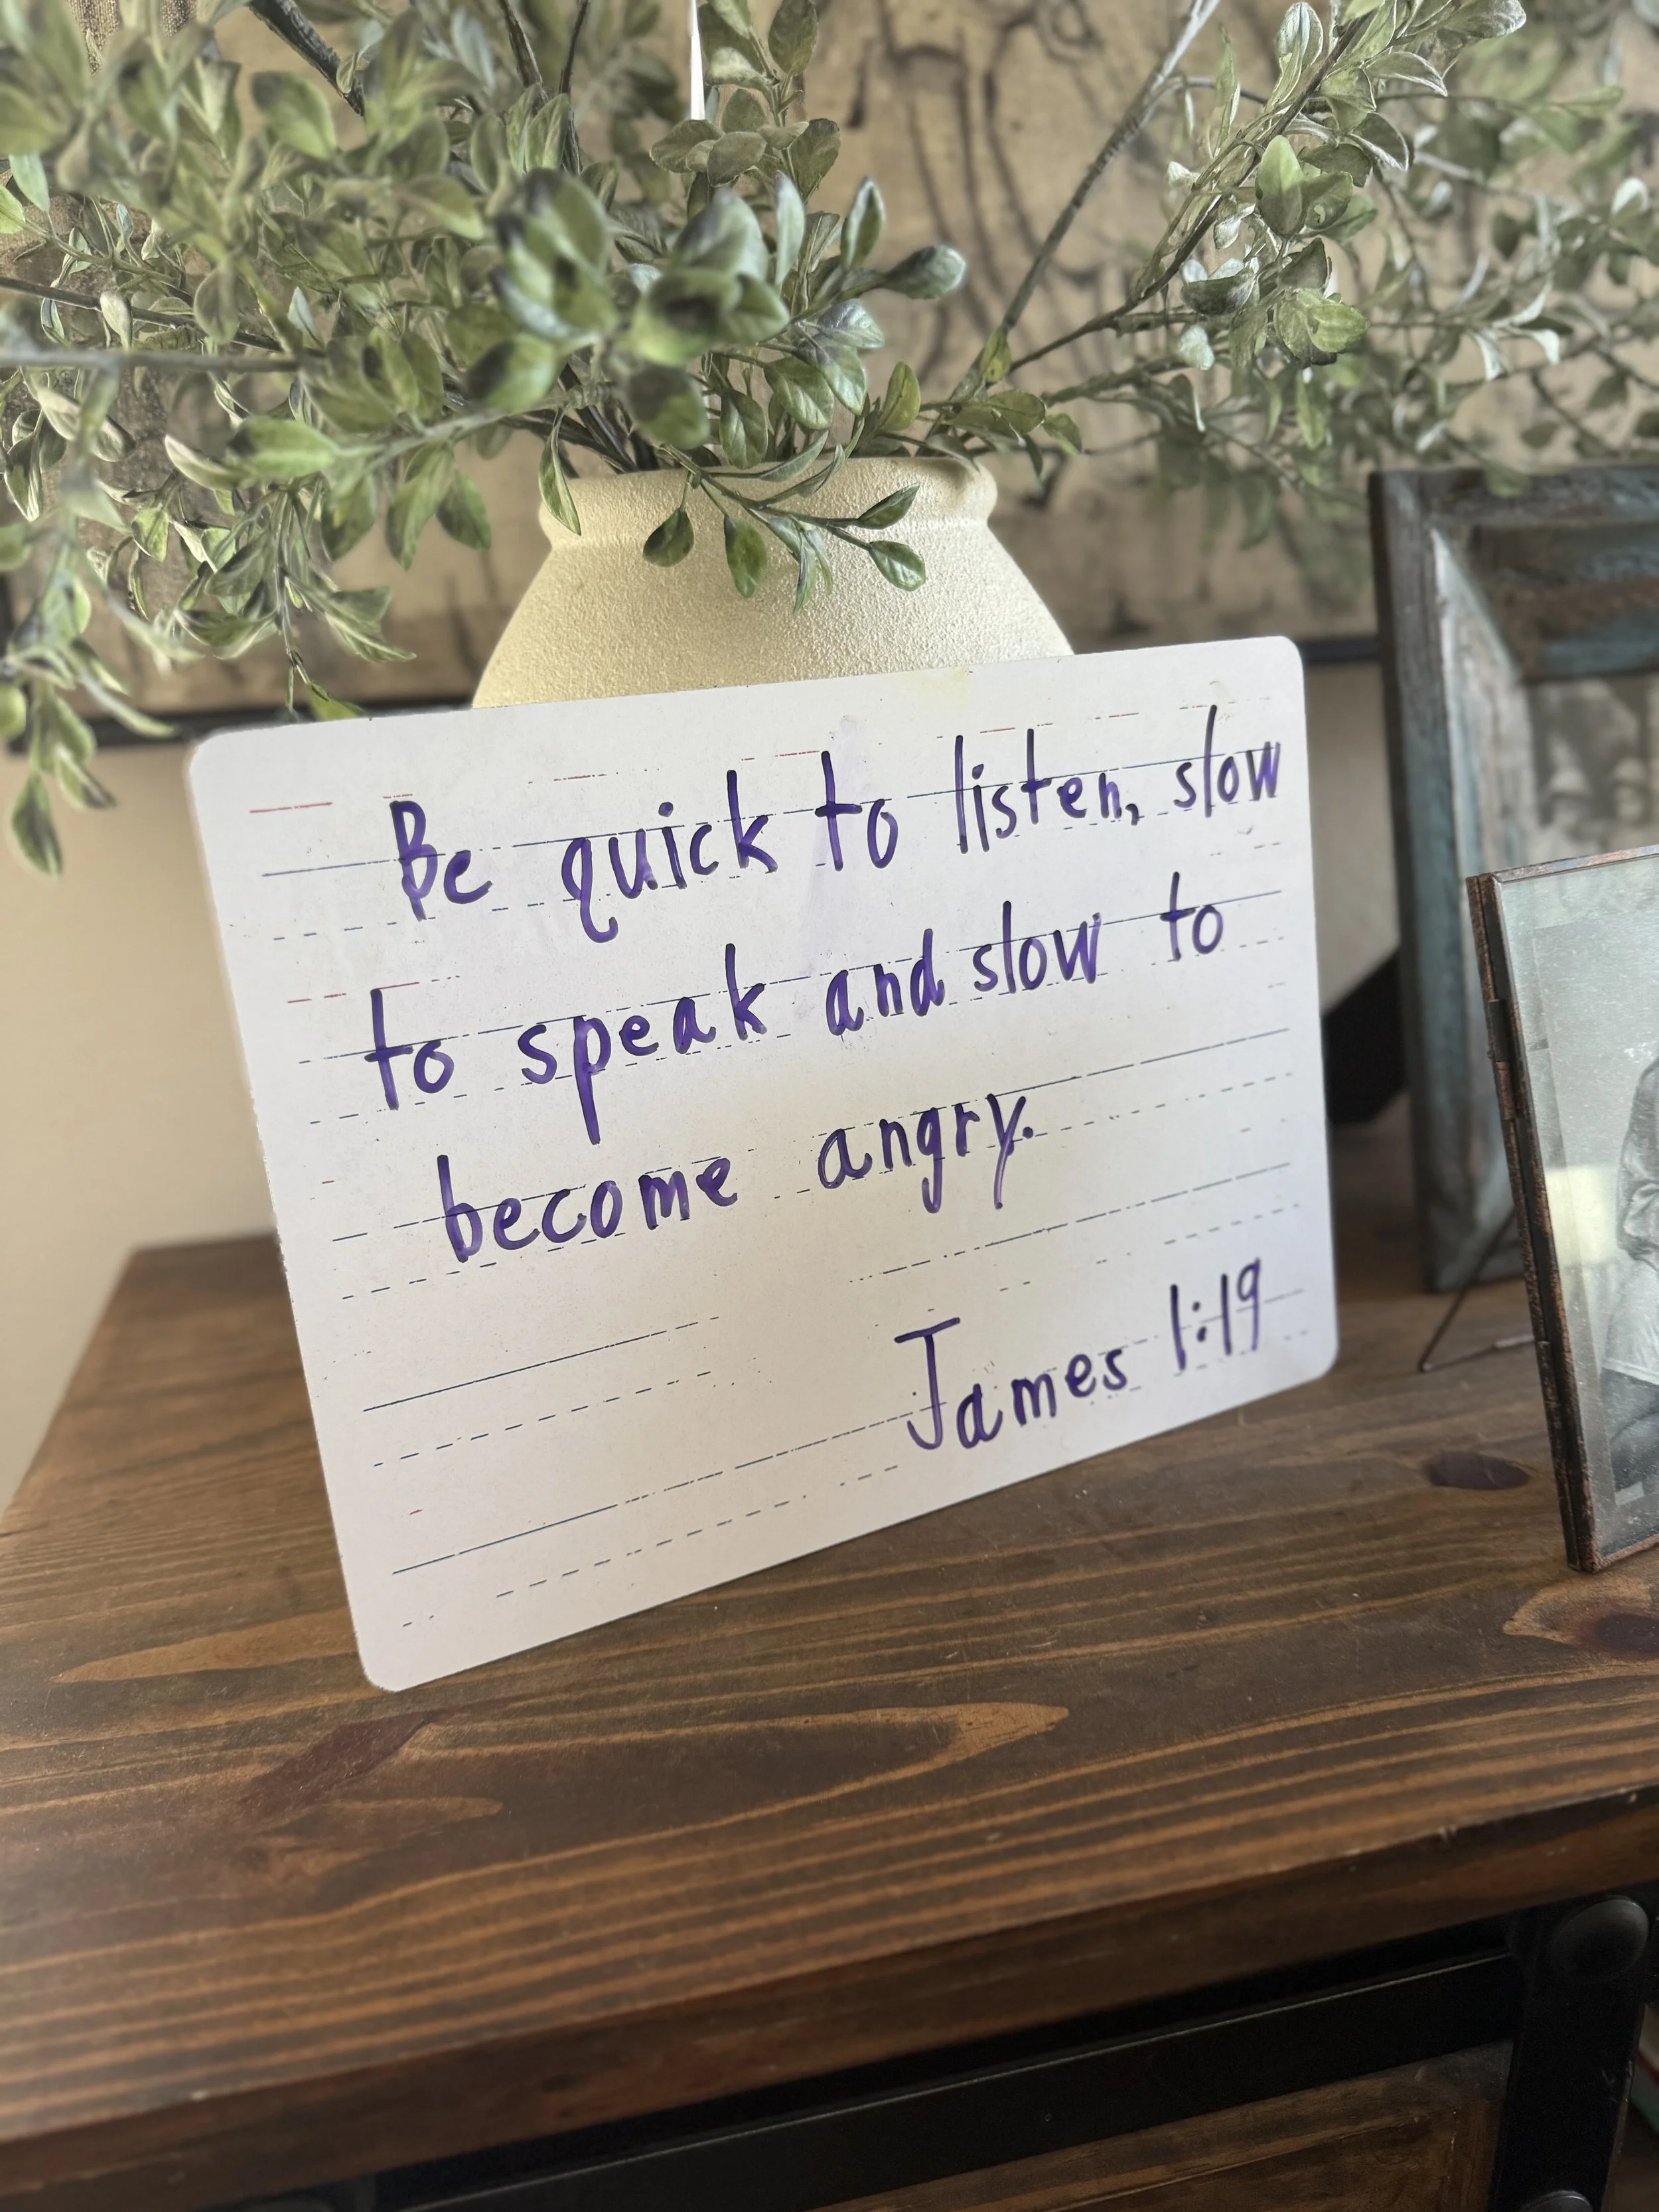 Be quick to listen, slow
to speak and slow to
become angry.
James 1:19